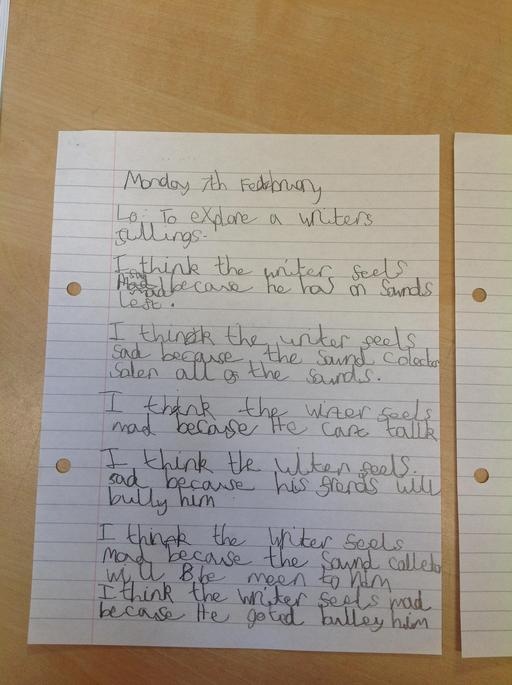 Monday 7th Fedebruary
Lo: To explore a writers
fullings.
I think the writer feels
sad because he has on Sounds
lest.
I think the writer feels
sad because the sound colector
salen all of the sounds.
I think the writer feels
mad because He cant tallk
I think the writer feels.
sad because his frends will
bully him
I think the writer feels
mad because the Sound colletor
will Bbe meen to him
I think the writer feels mad
because He goted bulley him